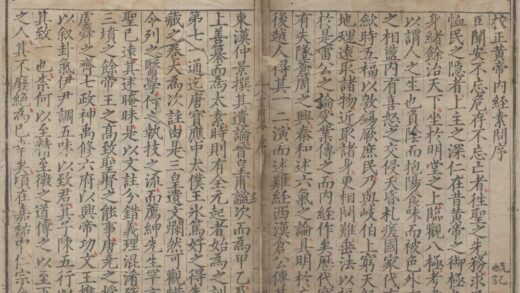 校正黃帝內經素問序
臣聞安不忘危存不忘亡者往聖之先務求
恤民之隱者上主之深仁在昔黃帝之御極
身緒餘治天下坐於明堂之上臨觀八極考
以謂人之生也負陰而抱陽食味而被色外
之相盪內有喜怒之交侵夭昏札瘥國家代
歛時五福以敷錫厥庶民乃與岐伯上窮天
地理遠取諸物近取諸身更相問難垂法以
於是雷公之倫授業傳之而內經作矣歷代
有失墜蒼周之興秦和述六氣之論具明於
後越人得其一二演而述難經西漢倉公傳
東漢仲景撰其遺論晉皇甫謐次而為甲乙
上善纂而為太素時則有全元起者始為之訓
第七一通迄唐寶應中太僕王冰篤好之得
藏之卷大為次註由是三皇遺文爛然可觀
令列之醫學付之執技之流而薦紳先生罕言
聖已遠其述晻昧是以文註分錯義理混淆
三墳之餘帝王之高致聖賢之能事唐堯之授
虞舜之齊七政神禹修六府以興帝功文王
以叙卦氣伊尹調五味以致君箕子陳五行以
其致一也柰何以至精至微之道傳之以至
之人其不廢絕為已幸矣頃在嘉祐中仁宗